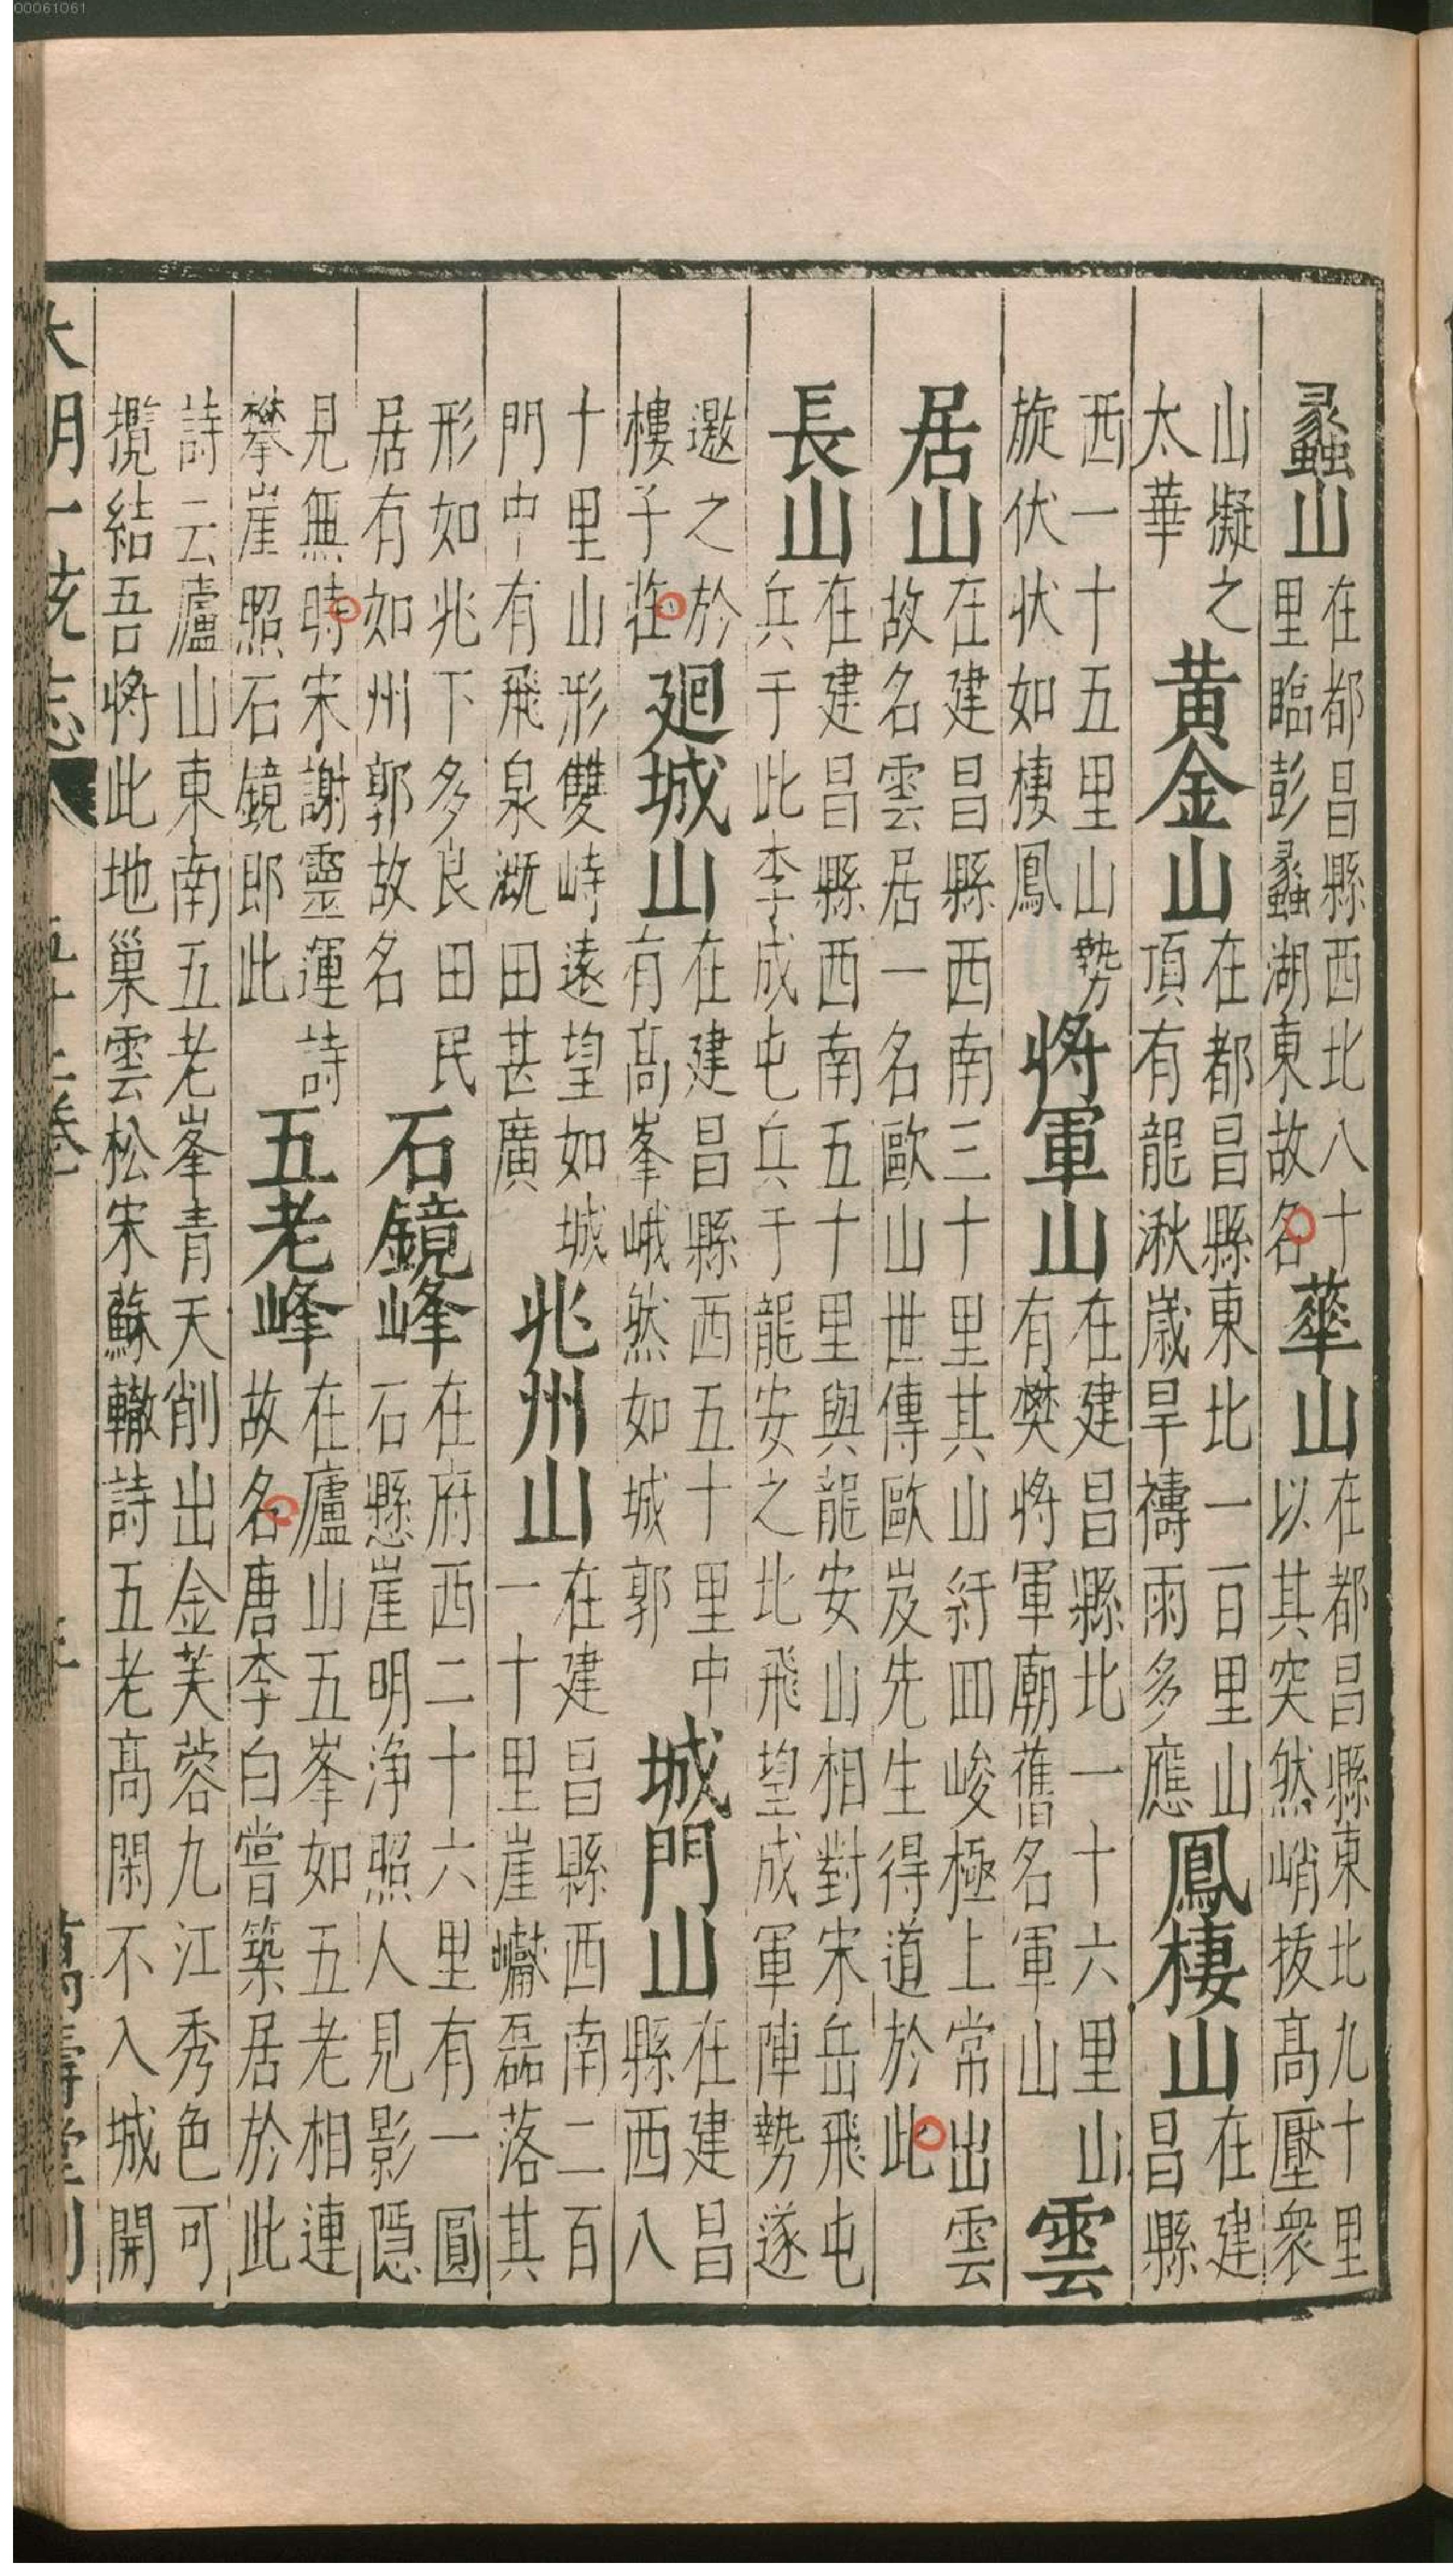 00061061
蠡山在都昌縣西北八十
里臨彭蠡湖東故名華山在都昌縣東北九十里
以其突然峭拔高壓衆
山擬之
太華黄金山在都昌縣東北一百里山
頂有龍湫歲旱禱雨多應鳳棲山在建
昌縣
西一十五里山勢
旋伏狀如棲鳳將軍山在建昌縣北一十六里山
有樊將軍廟舊名軍山雲
居山在建昌縣西南三十里其山紆回峻極上常出雲
故名雲居一名歐山世傳歐岌先生得道於此
長山在建昌縣西南五十里與龍安山相對宋岳飛屯
兵于此李成屯兵于龍安之北飛望成軍陣勢遂
邀之於
樓子莊廻城山在建昌縣西五十里中
有高峯峨然如城郭城門山在建昌
縣西八
十里山形雙峙遠望如城
門中有飛泉溉田甚廣兆州山在建昌縣西南二百
一十里崖巘磊落其
形如兆下多良田民
居有如州郭故名石鏡峰在府西二十六里有一圓
石懸崖明净照人見影隠
見無時宋謝靈運詩
攀崖照石鏡即此五老峰在廬山五峯如五老相連
故名唐李白嘗築居於此
詩云廬山東南五老峯青天削出金芙蓉九江秀色可
攬結吾將此地巢雲松宋蘇轍詩五老高閑不入城開
大明一統志